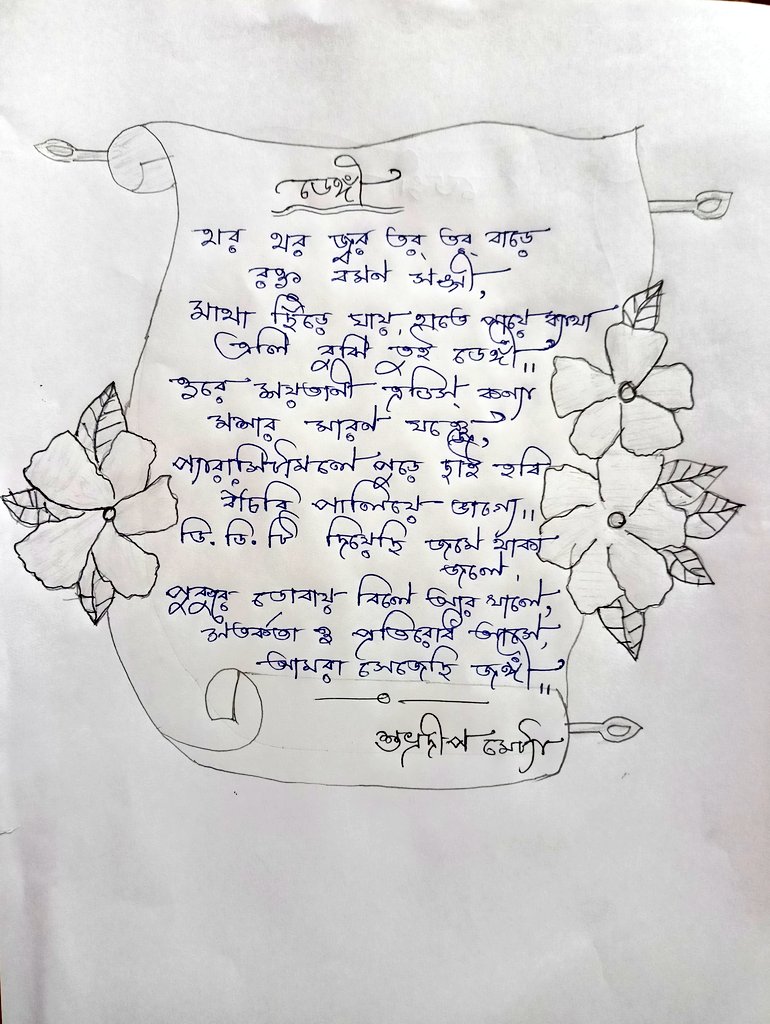 ডেঙ্গী
থর থর জ্বর তর্ তর্ বাড়ে
রক্ত বমন সঙ্গী,
মাথা ছিঁড়ে যায়, হাতে পায়ে ব্যথা
এলি বুঝি তুই ডেঙ্গী॥
ওরে শয়তানী এডিস্ কন্যা
মশার মারণ যজ্ঞে,
প্যারাসিটামলে পুড়ে ছাই হবি
বাঁচবি পালিয়ে ভাগ্যে॥
ডি. ডি. টি দিয়েছি জমে থাকা
জলে,
পুকুর ডোবায় বিলে আর খালে,
সতর্কতা ও প্রতিরোধ আসে,
আমরা সেজেছি জঙ্গী॥
শুভ্রদীপ মেট্যা